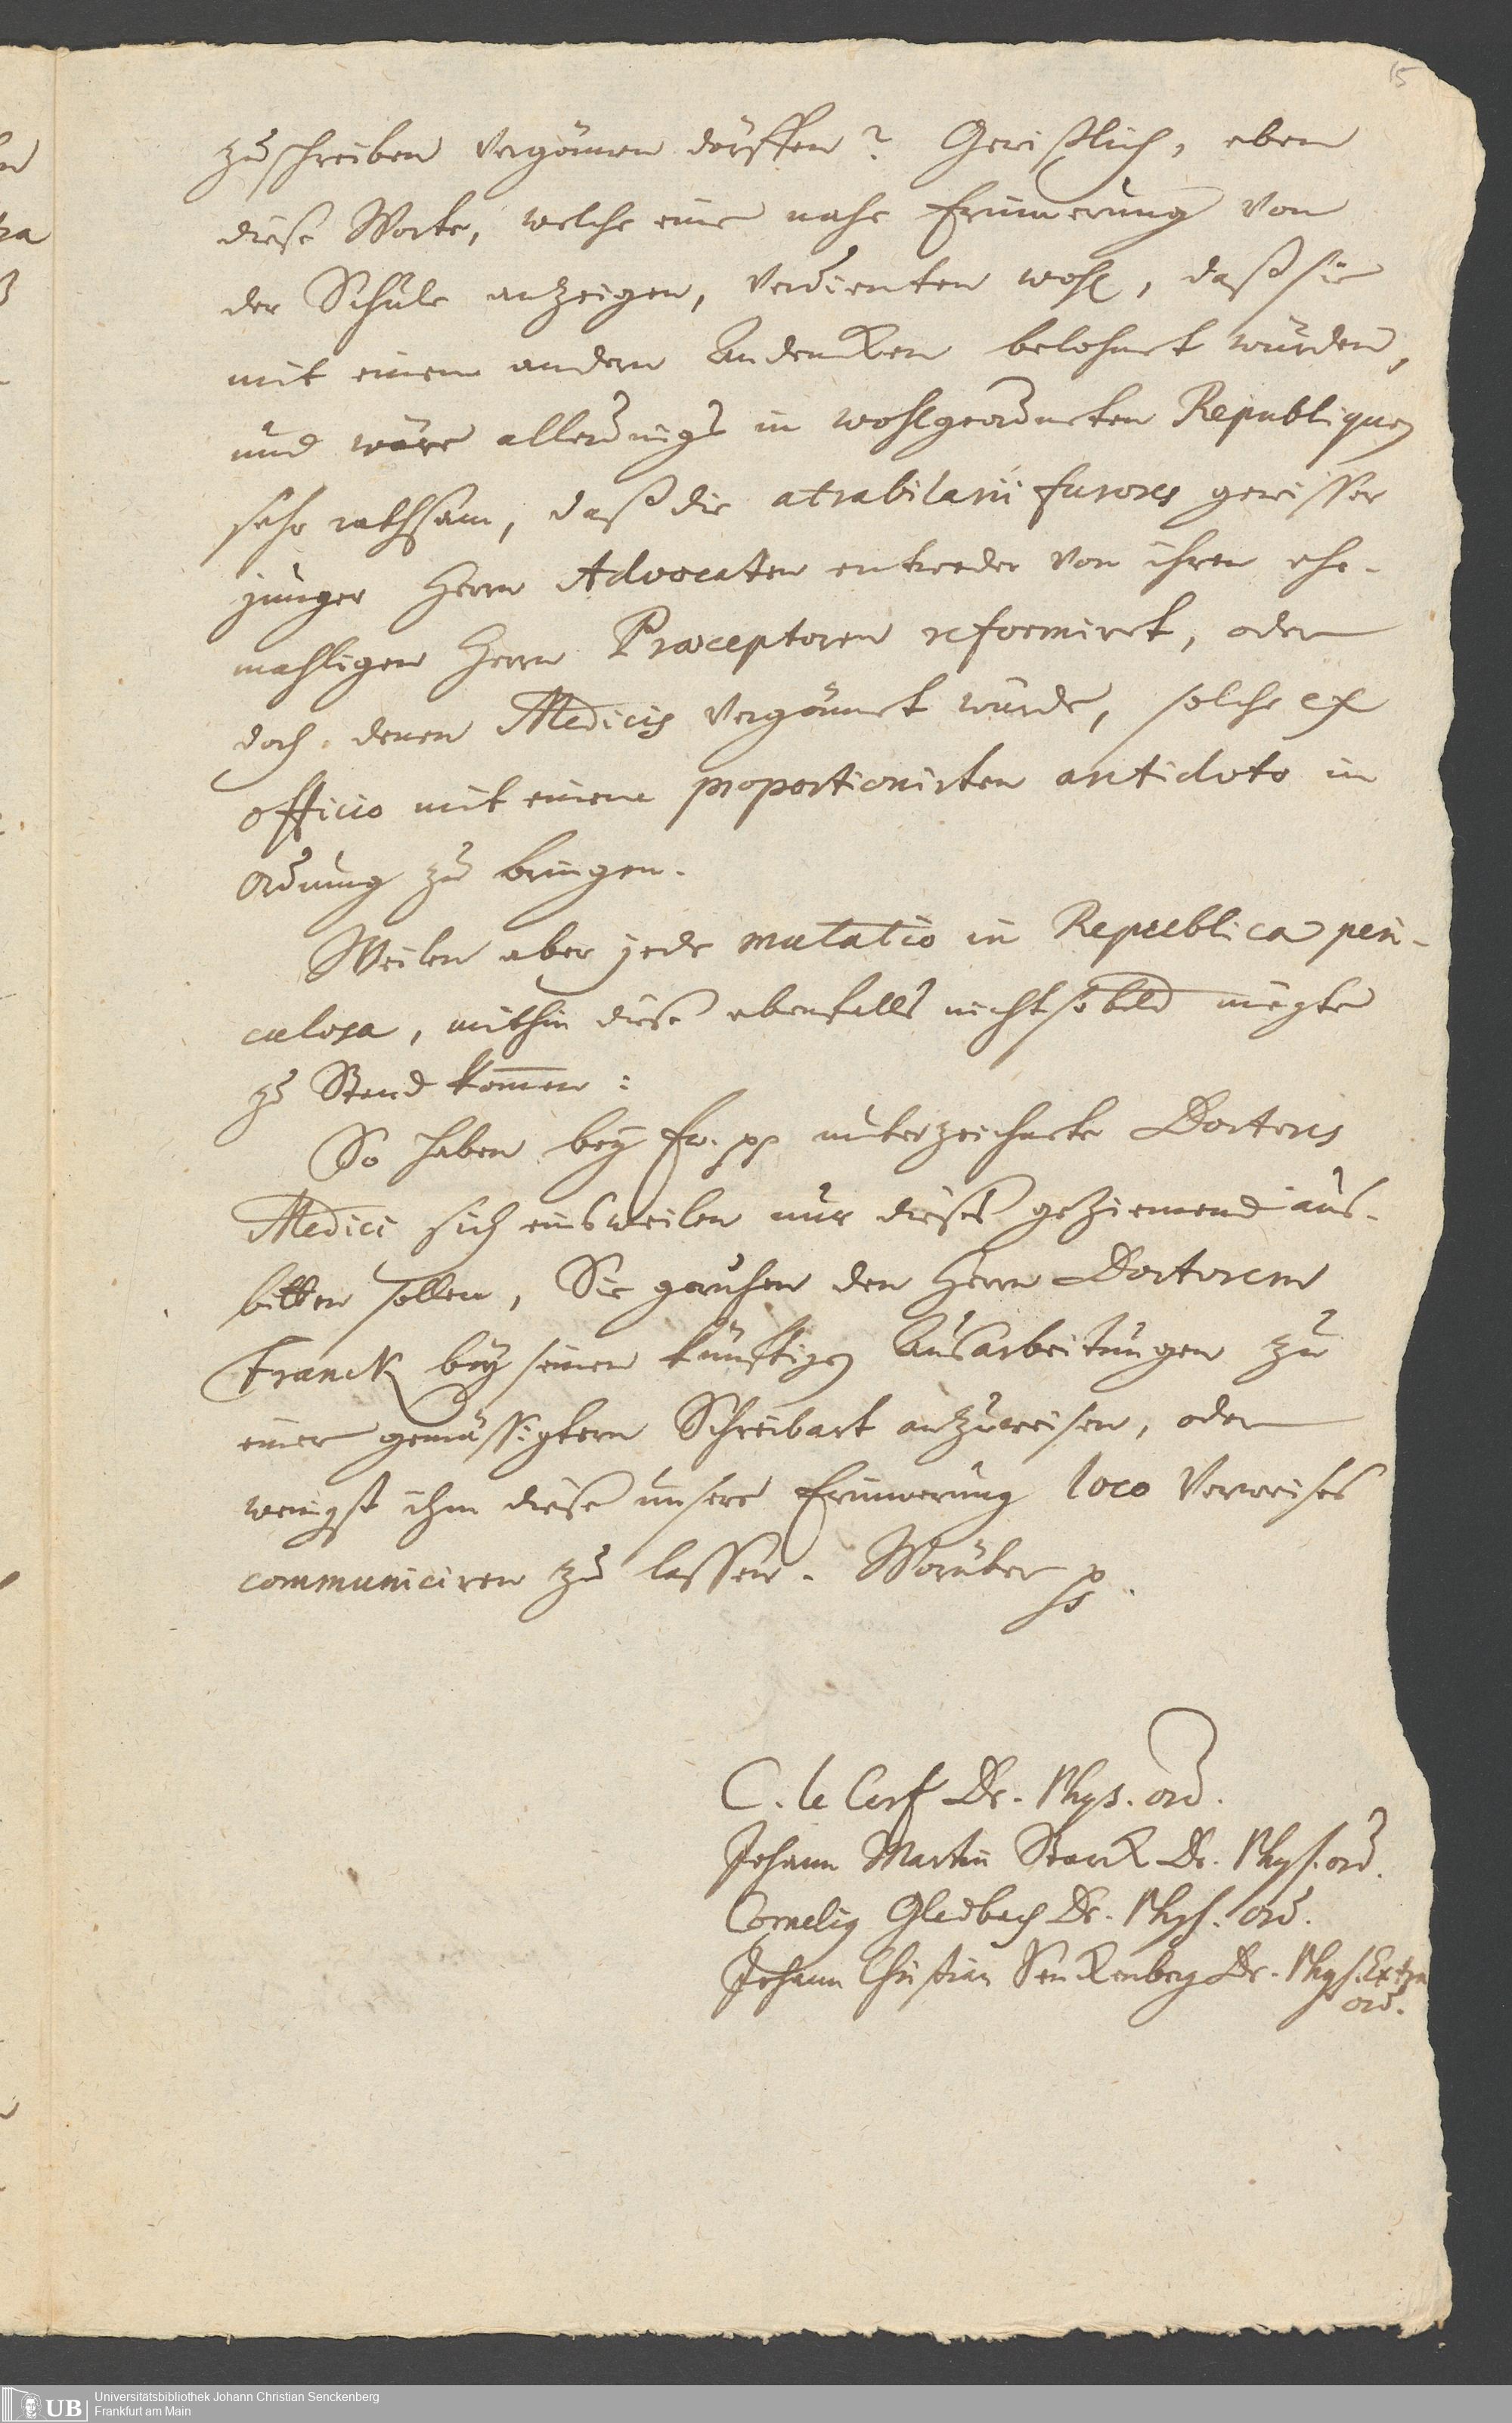 15
zuschreiben vergönnen dörffen? Gewißlich, eben
diese Worte, welche eine nahe Erinnerung von
der Schule anzeigen, verdienten wohl, daß sie
mit einem andern Andencken belohnet würden,
und wäre allerdings in wohlgeordneten Republiquen
sehr rathsam, daß die atrabilarii furores gewisser
junger Herrn Advocaten entweder von ihren ehe-
mahligen Herrn Præceptoren reformiret, oder
doch denen Medicis vergönnet würde, solche ex
officio mit einem proportionirten antidoto in
Ordnung zu bringen.
Weilen aber jede mutatio in Republica peri-
culosa, mithin diese ebenfalls nicht so bald mögte
zu Stand kom̅en:
So haben bey Ew. pp unterzeichnete Doctores
Medici sich einsweilen nur dieses geziemend aus-
bitten sollen, Sie geruhen den Herrn Doctorem
Franck bey seinen künftigen Ausarbeitungen zu
einer gemässigtern Schreibart anzuweisen, oder
wenigst ihm diese unsere Erinnerung loco Verweises
communiciren zu lassen. Worüber pp.
C. le Cerf Dr. Phys. ord.
Johann Martin Starck Dr. Phys. ord.
Cornelius Gladbach Dr. Phys. ord.
Johann Christian Senckenberg Dr. Phys. Extra
ord.
UB
Universitätsbibliothek Johann Christian Senckenberg
Frankfurt am Main